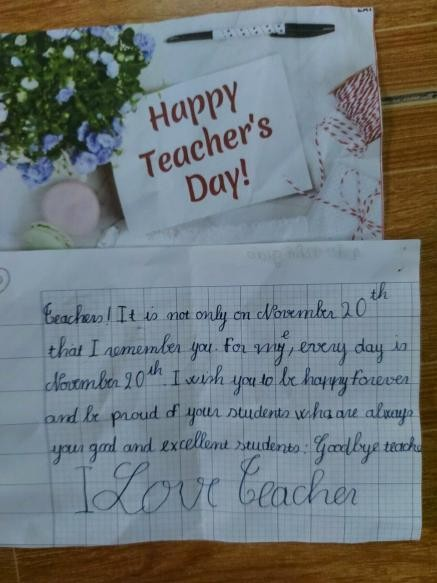 Happy
Teacher's
Day!
Teachers! It is not only on November 20th
that I remember you. For mye, every day is
November 20th. I wish you to be happy forever
and be proud of your students who are always
your good and excellent students! Goodbye teache
I Love Teacher